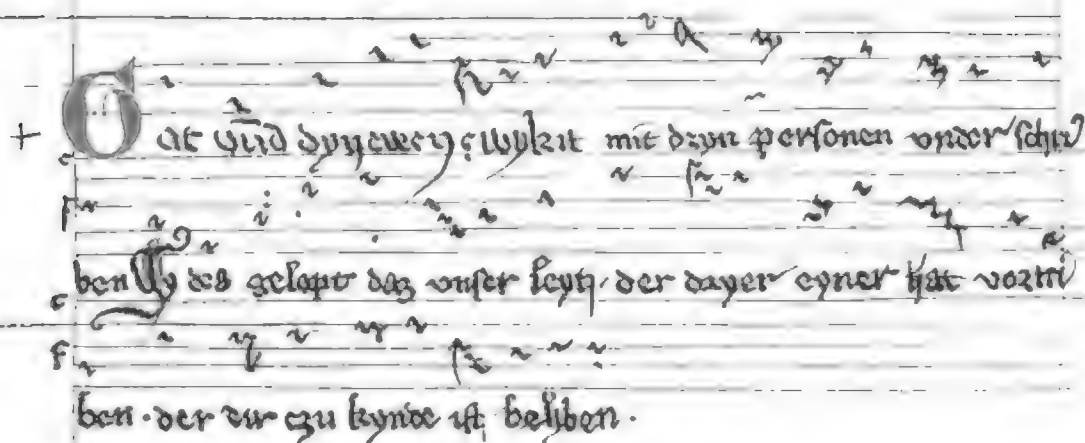 Got vnd dyn ewen ewykit mit dryn personen vnder schri
ben Wy des gelopt daz vnser leyt der dryer eyner hat vortri
ben · der dir czu kynde ist beliben ·